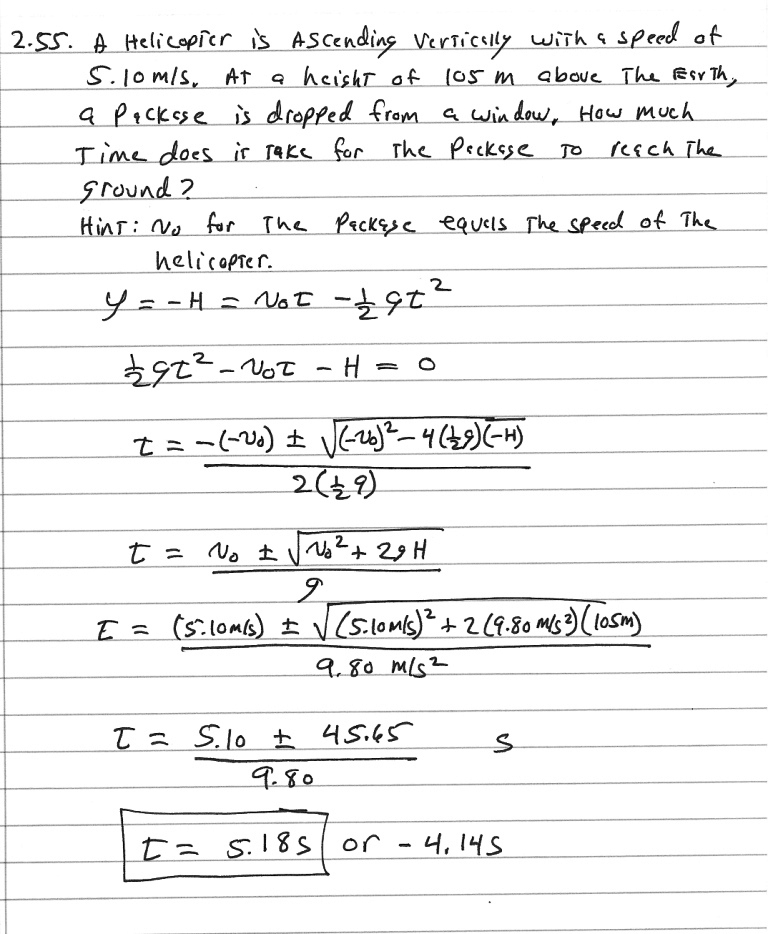 2.55. A Helicopter is Ascending Vertically with a speed of
5.10 m/s. At a height of 105 m above The Earth,
a Package is dropped from a window. How much
Time does it Take for The Package To reach The
ground?
Hint: v₀ for The Package equals The speed of The
helicopter.
y = -H = v₀t - ½gt²
½gt² - v₀t - H = 0
t = (-(-v₀) ± √((-v₀)² - 4(½g)(-H))) / (2(½g))
t = (v₀ ± √(v₀² + 2gH)) / g
t = ((5.10 m/s) ± √((5.10 m/s)² + 2(9.80 m/s²)(105m))) / (9.80 m/s²)
t = (5.10 ± 45.65) / 9.80 s
t = 5.18s or -4.14s